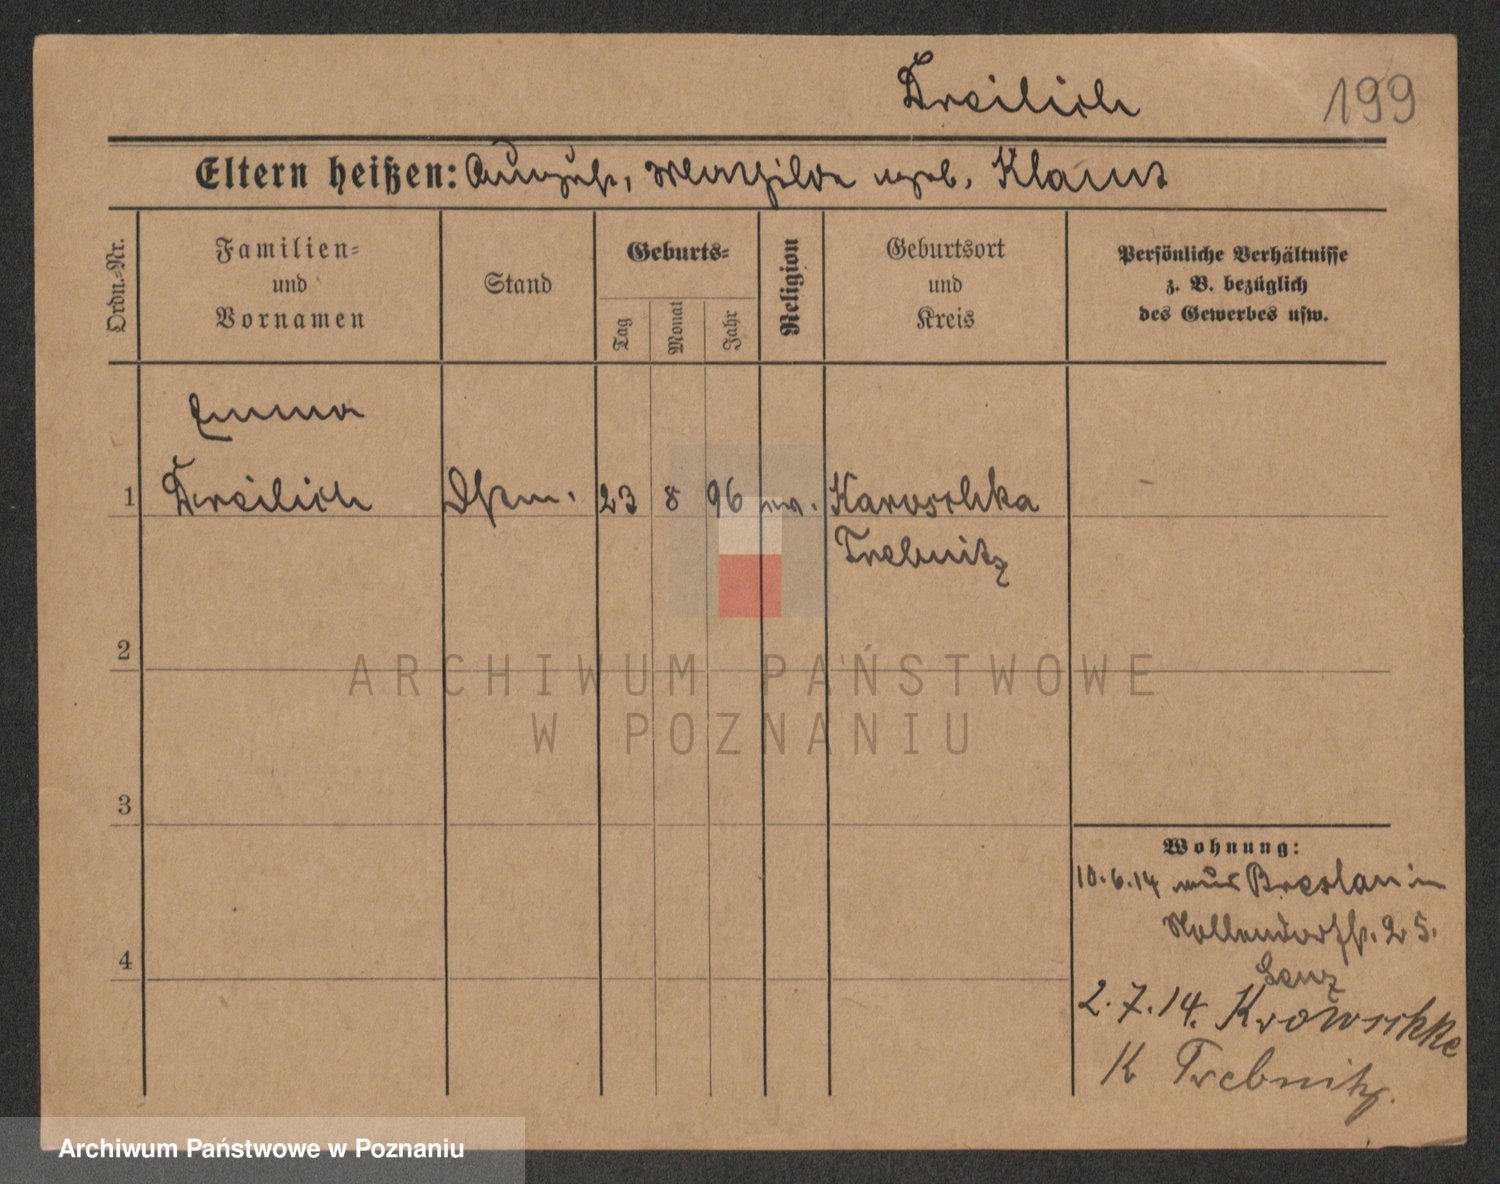 Dreilich
199
Eltern heißen: August, Mathilde geb. Klamt
Ordn.-Nr.
Familien-
und
Vornamen
Stand
Geburts-
Tag
Monat
Jahr
Religion
Geburtsort
und
Kreis
Persönliche Verhältnisse
z. B. bezüglich
des Gewerbes usw.
Emma
1 Dreilich Dstm. 23 8 96 ev. Karoschka
Trebnitz
2
ARCHIWUM PAŃSTWOWE
W POZNANIU
3
Wohnung:
10.6.14 aus Breslau in
Nollendorfstr. 25.
4
Lenz
2.7.14. Kroschke
K Trebnitz.
Archiwum Państwowe w Poznaniu